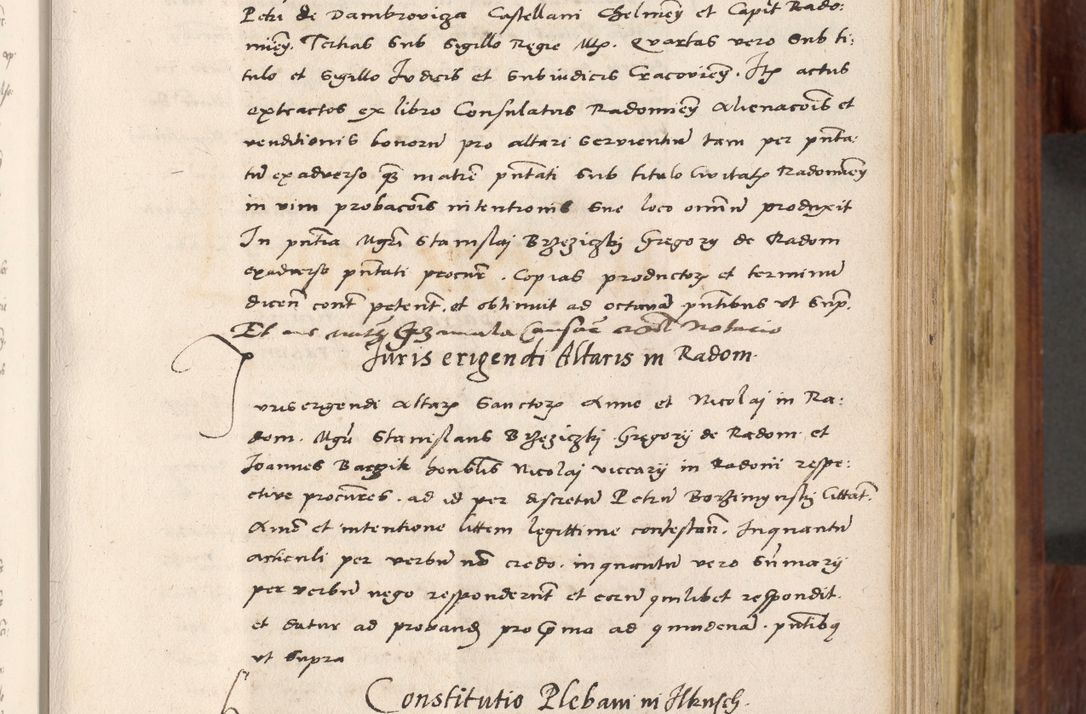 Petri de Dambroviza Castellani Chelmeñ et Capit Rado:
mieñ. Tertias sub sigillo Regie Mtis. Quartas vero sub ti:
tulo et sigillo Judicis et subiudicis Cracovieñ. Itz actus
extractos ex libro Consulatus Radomieñ Alienacois et
venditionis bonorum pro altari servientiu tam per pnta
tu ex adverso matre pntati sub titulo Civitatz Radomieñ
in vim probacois intentionis sue loco omniu produxit
In pntia Mgri Stanislaj Brzeziczkj Gregorij de Radom
exadverso pntati procur. Copias productorz et terminu
dicen cont petent. et obtinuit ad octava pntibus ut supr.
Et Notario
Juris erigendi Altaris in Radom.
Juris erigendi Altarz Sanctorz Anne et Nicolaj in Ra:
dom. Mgri Stanislaus Brzeziczkj Gregorij de Radom et
Joannes Baczik honblis Nicolaj viccarij in Radom respe:
ctive procures. ad id per discretu Petru Borzimynskj Cittat.
Animo et intentione littem legittime contestan. Inquantu
articuli per verbu no credo. inquantu vero sumarij
per verbu nego responderunt et eoru quilibet respondit.
et datur ad proband pro prima ad quindena. pntibq
ut supra
Constitutio Plebani in Ilkusch.